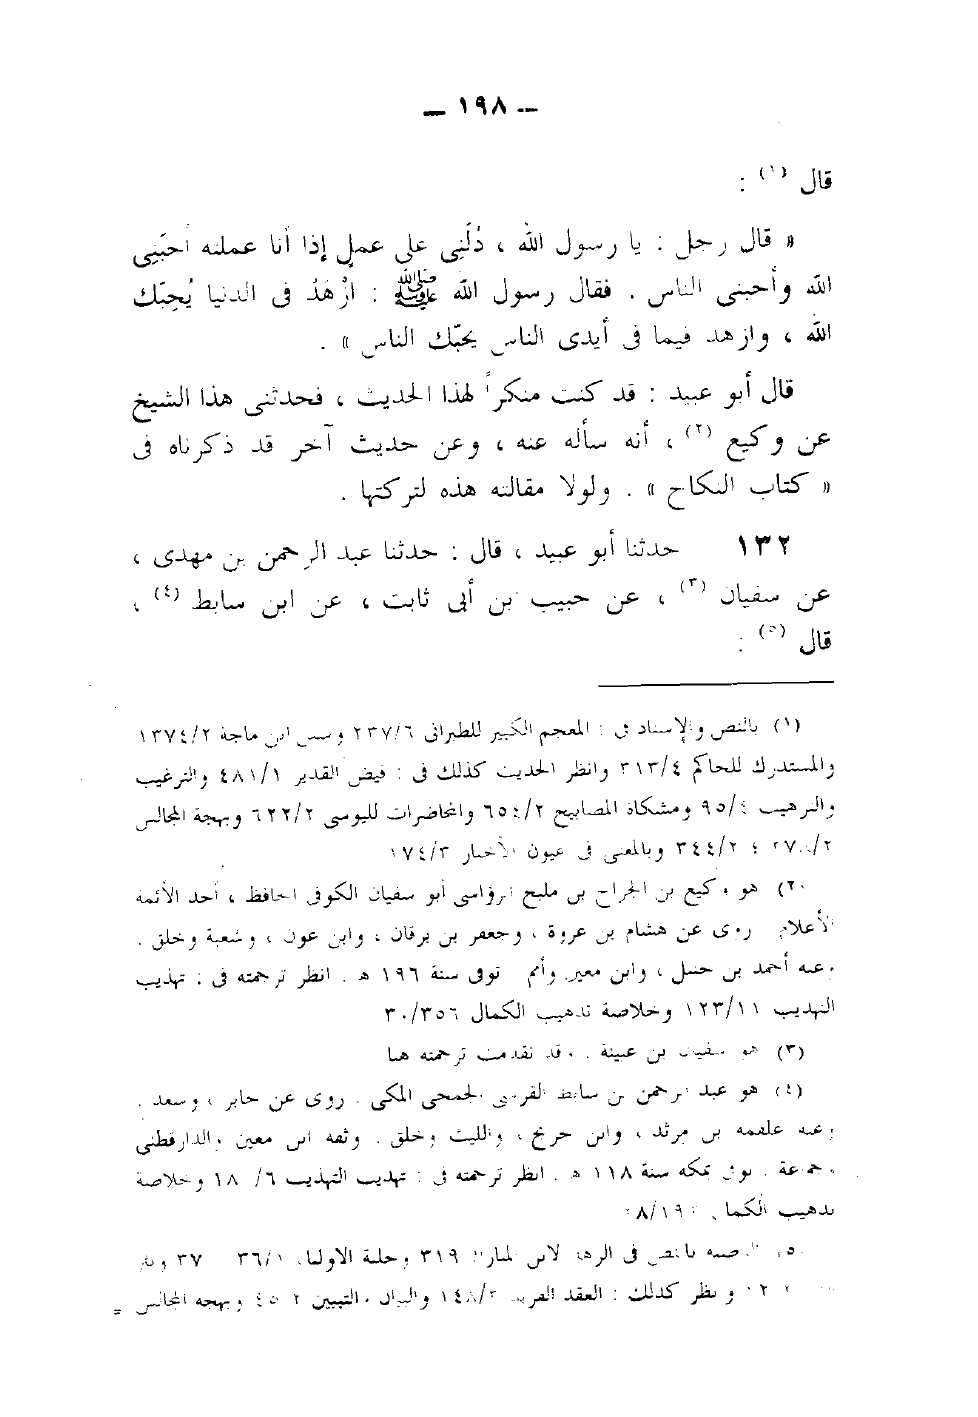 — ١٩٨ —
قال (١) :
« قال رجل : يا رسول الله ، دُلَّنِى على عملٍ إذا أنا عملته أحبَّنِى
الله وأحبنى الناس . فقال رسول الله ﷺ : ازْهَدْ فى الدنيا يُحِبَّك
الله ، وازهد فيما فى أيدى الناس يحبّك الناس » .
قال أبو عبيد : قد كنت منكراً لهذا الحديث ، فحدثنى هذا الشيخ
عن وكيع (٢) ، أنه سأله عنه ، وعن حديث آخر قد ذكرناه فى
« كتاب النكاح » . ولولا مقالته هذه لتركتها .
١٣٢ حدثنا أبو عبيد ، قال : حدثنا عبد الرحمن بن مهدى ،
عن سفيان (٣) ، عن حبيب بن أبى ثابت ، عن ابن سابط (٤) ،
قال (٥) :
(١) بالنص والإسناد فى : المعجم الكبير للطبرانى ٢٣٧/٦ وسنن ابن ماجة ١٣٧٤/٢
والمستدرك للحاكم ٣١٣/٤ وانظر الحديث كذلك فى : فيض القدير ٤٨١/١ والترغيب
والترهيب ٩٥/٤ ومشكاة المصابيح ٦٥٤/٢ والمحاضرات لليوسى ٦٢٢/٢ وبهجة المجالس
؛ ٣٤٤/٢ وبالمعنى فى عيون الأخبار ١٧٤/٣
(٢) هو وكيع بن الجراح بن مليح الرؤاسى أبو سفيان الكوفى الحافظ ، أحد الأئمة
الأعلام روى عن هشام بن عروة ، وجعفر بن برقان ، وابن عون ، وشعبة وخلق .
وعنه أحمد بن حنبل ، وابن معين وأمم توفى سنة ١٩٦ هـ . انظر ترجمته فى : تهذيب
التهذيب ١٢٣/١١ وخلاصة تذهيب الكمال ٣٠/٣٥٦
(٣) هو سفيان بن عيينة . وقد تقدمت ترجمته هنا
(٤) هو عبد الرحمن بن سابط القرشى الجمحى المكى . روى عن جابر ، وسعد .
وعنه علقمة بن مرثد ، وابن جريج ، والليث وخلق . وثقه ابن معين والدارقطنى
وجماعة . توفى بمكة سنة ١١٨ هـ . انظر ترجمته فى : تهذيب التهذيب ٦/ ١٨ وخلاصة
تذهيب الكمال
فى الزهد لابن المبارك ٣١٩ وحلية الأولياء ٣٦/١ ٣٧
وانظر كذلك : العقد الفريد ١٤٨/٣ والبيان والتبيين وبهجة المجالس =